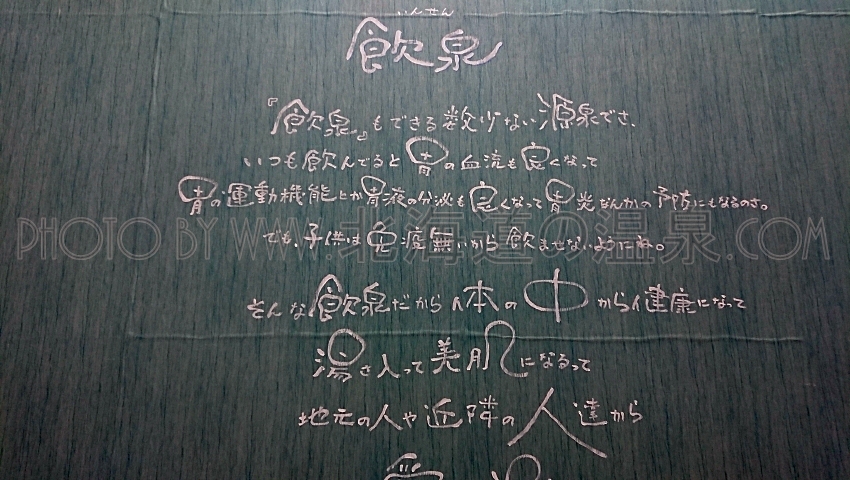 いんせん
飲泉
『飲泉』もできる数少ない源泉でさ、
いつも飲んでると胃の血流も良くなって
胃の運動機能とか胃液の分泌も良くなって胃炎なんかの予防にもなるのさ。
でも、子供は免疫無いから飲ませないようにね。
そんな飲泉だから体の中から健康になって
湯さ入って美肌になるって
地元の人や近隣の人達から
PHOTO BY WWW.北海道の温泉.COM